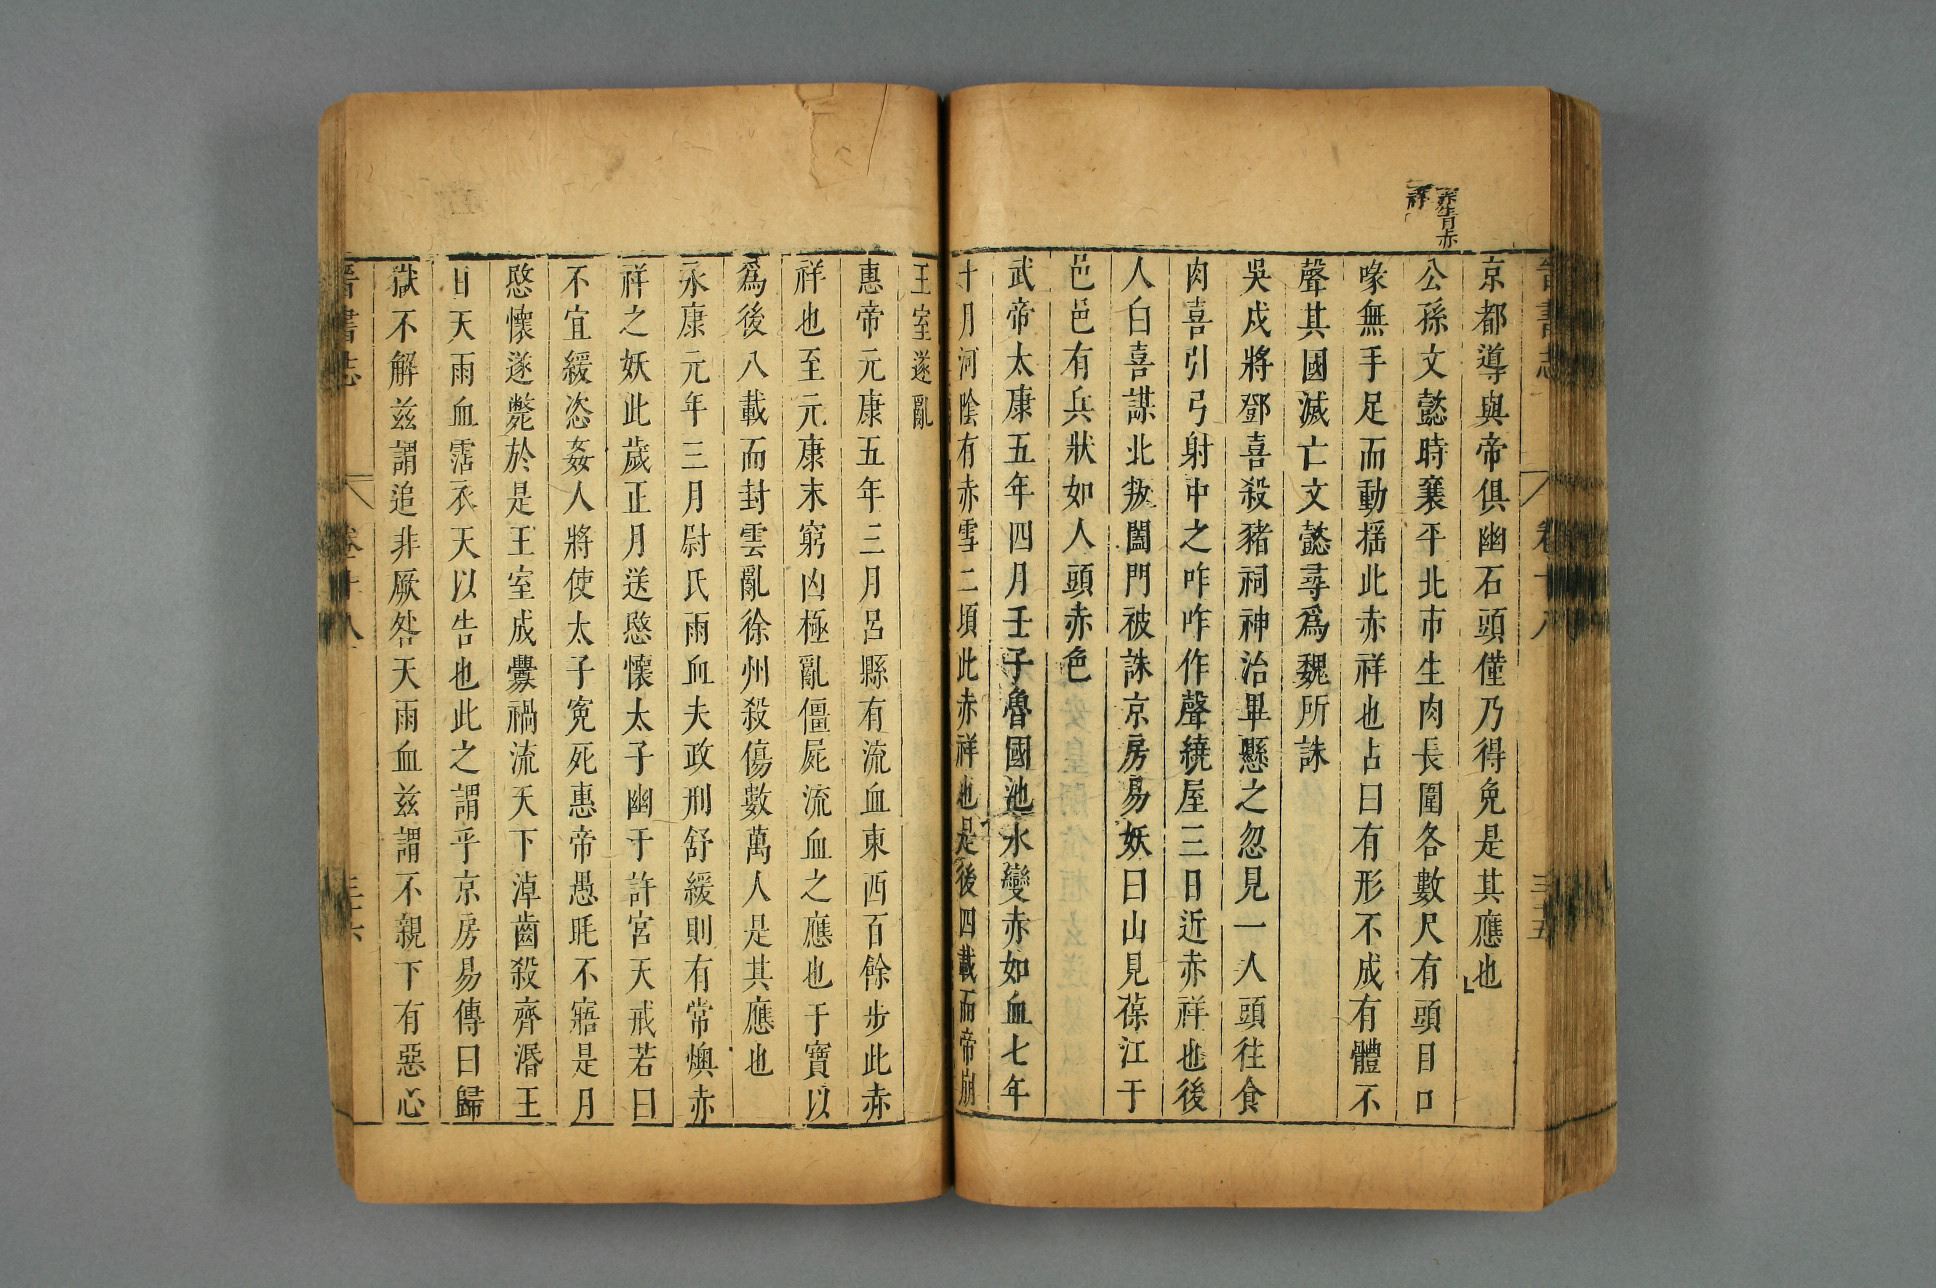 晉書志 卷十八 三十五
京都導與帝俱幽石頭僅乃得免是其應也
公孫文懿時襄平北市生肉長圍各數尺有頭目口
喙無手足而動搖此赤祥也占曰有形不成有體不
聲其國滅亡文懿尋爲魏所誅
吳戍將鄧喜殺豬祠神治畢懸之忽見一人頭往食
肉喜引弓射中之咋咋作聲繞屋三日近赤祥也後
人白喜謀北叛闔門被誅京房易妖曰山見葆江于
邑邑有兵狀如人頭赤色
武帝太康五年四月壬子魯國池水變赤如血七年
十月河陰有赤雪二頃此赤祥也是後四載而帝崩
王室遂亂
惠帝元康五年三月呂縣有流血東西百餘步此赤
祥也至元康末窮凶極亂僵屍流血之應也干寶以
爲後八載而封雲亂徐州殺傷數萬人是其應也
永康元年三月尉氏雨血夫政刑舒緩則有常燠赤
祥之妖此歲正月送愍懷太子幽于許宮天戒若曰
不宜緩恣姦人將使太子冤死惠帝愚眊不寤是月
愍懷遂斃於是王室成釁禍流天下淖齒殺齊湣王
日天雨血霑衣天以告也此之謂乎京房易傳曰歸
獄不解茲謂追非厥咎天雨血茲謂不親下有惡心
晉書志 卷十八 三十六